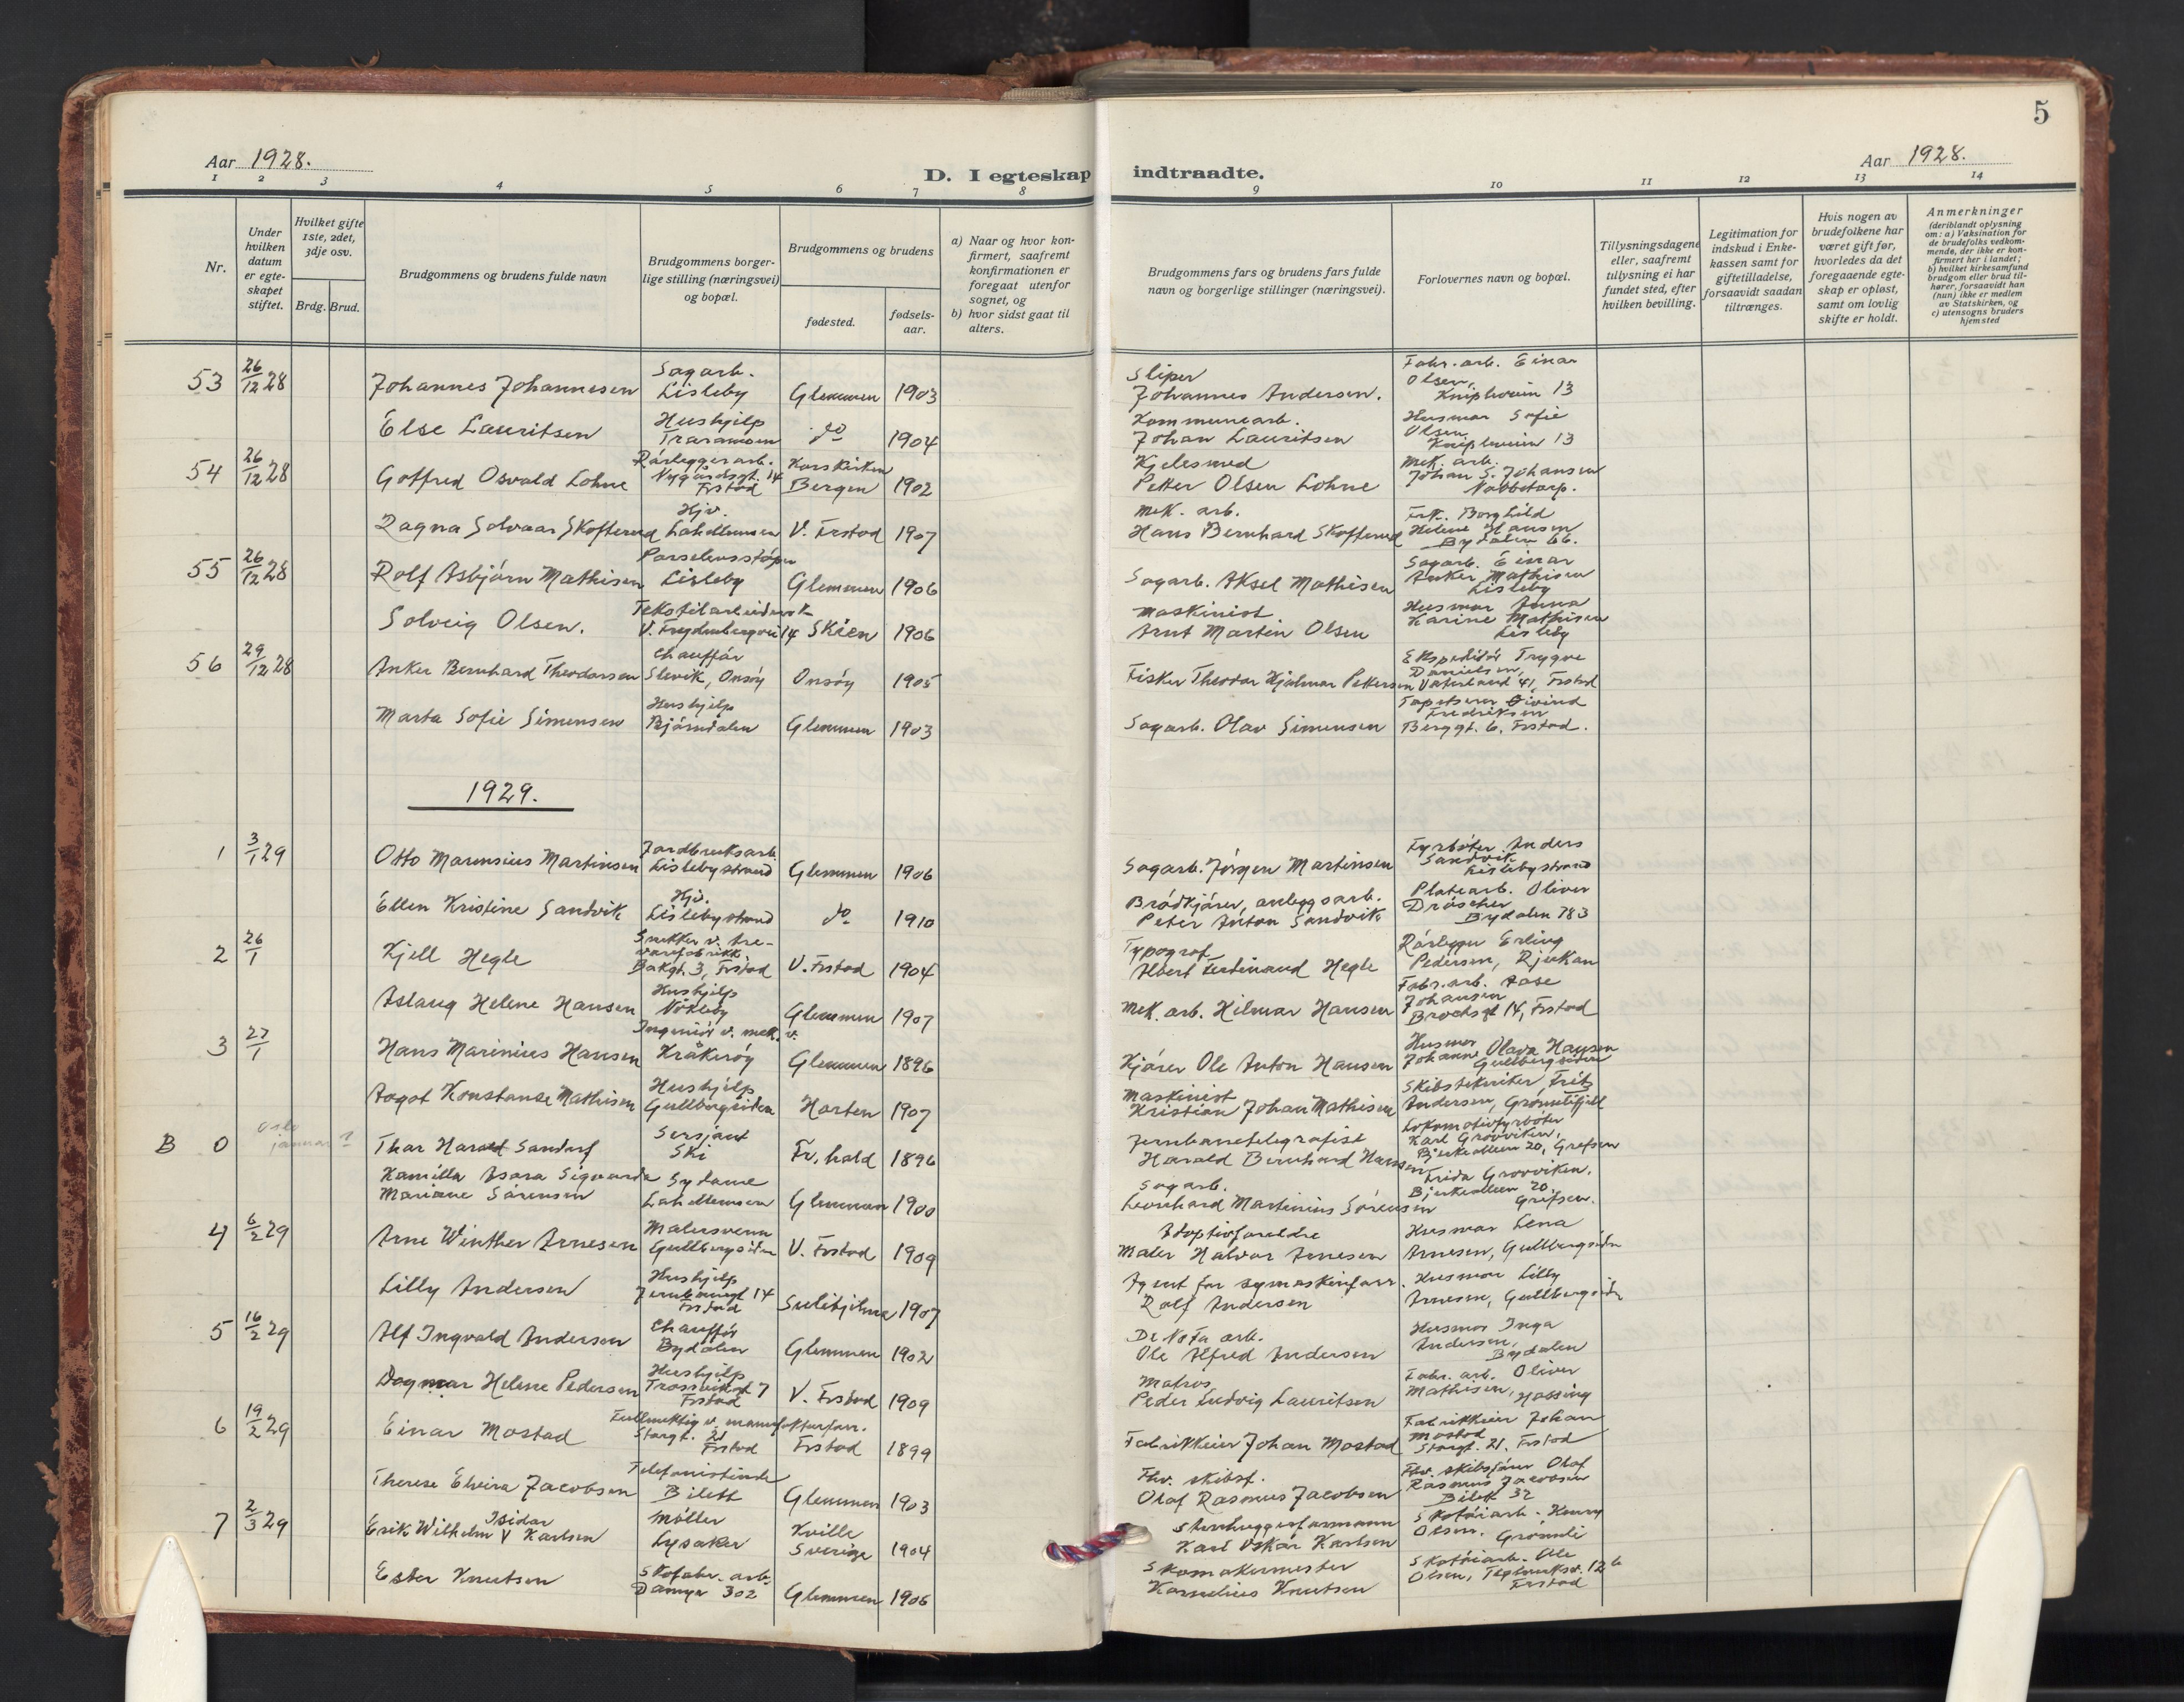 5
Aar 1928.
D. I egteskap indtraadte.
Aar 1928.
1 2 3 4 5 6 7 8 9 10 11 12 13 14
Nr.
Under hvilken datum er egteskapet stiftet.
Hvilket gifte 1ste, 2det, 3dje osv.
Brdg. Brud.
Brudgommens og brudens fulde navn
Brudgommens borgerlige stilling (næringsvei) og bopæl.
Brudgommens og brudens
fødested.
fødselsaar.
a) Naar og hvor konfirmert, saafremt konfirmationen er foregaat utenfor sognet, og
b) hvor sidst gaat til alters.
Brudgommens fars og brudens fars fulde navn og borgerlige stillinger (næringsvei).
Forlovernes navn og bopæl.
Tillysningsdagene eller, saafremt tillysning ei har fundet sted, efter hvilken bevilling.
Legitimation for indskud i Enkekassen samt for giftetilladelse, forsaavidt saadan tiltrænges.
Hvis nogen av brudefolkene har været gift før, hvorledes da det foregaaende egteskap er opløst, samt om lovlig skifte er holdt.
Anmerkninger (deriblandt oplysning om: a) Vaksination for de brudefolks vedkommende, der ikke er konfirmert her i landet; b) hvilket kirkesamfund brudgom eller brud tilhører, forsaavidt han (hun) ikke er medlem av Statskirken, og c) utensogns bruders hjemsted
53 26/12 28 Johannes Johannesen Sagarb. Lisleby Glemmen 1903 Sliper Johannes Andersen. Fabr. arb. Einar Olsen, Kniplveien 13
Else Lauritsen Hushjelp Traramoen do 1904 Kommunearb. Johan Lauritsen Husmor Sofie Olsen Kniplveien 13
54 26/12 28 Gotfred Osvald Lohne Rörleggerarb. Nygårdsgt. 14 Frstad Korskirken Bergen 1902 Kjelesmed Petter Olsen Lohne Mek. arb. Johan S. Johansen Nabbetorp.
Ragna Solvaar Skofterud Hjv. Lahellmoen V. Frstad 1907 Mek. arb. Hans Bernhard Skofterud Frk. Borghild Helene Hansen Bydalen 66.
55 26/12 28 Rolf Asbjörn Mathisen Porselensstöper Lisleby Glemmen 1906 Sagarb. Aksel Mathisen Sagarb. Einar Anker Mathisen Lisleby
Solveig Olsen. Tekstilarbeiderske V. Frydenbergvei 14 Skien 1906 Maskinist Arnt Martin Olsen Husmor Anna Karine Mathisen Lisleby
56 29/12 28 Anker Bernhard Theodorsen Chauffør Slevik, Onsöy Onsöy 1905 Fisker Theodor Hjalmar Pettersen Ekspeditör Trygve Danielsen, Vaterland 41, Frstad
Marta Sofie Simensen Hushjelp Bjørndalen Glemmen 1903 Sagarb. Olav Simensen Tapetserer Øivind Fredriksen Berggt. 6, Frstad.
1929.
1 3/1 29 Otto Marensius Martinsen Jordbruksarb. Lislebystrand Glemmen 1906 Sagarb. Jörgen Martinsen Fyrböter Anders Sandvik Lislebystrand
Ellen Kristine Sandvik Hjv. Lislebystrand do 1910 Brödkjörer, anleggsarb. Peter Anton Sandvik Platearb. Oliver Dröscher Bydalen 783
2 26/1 Kjell Hegle Snekker v. trevarefabrikk. Bakgt. 3, Frstad V. Frstad 1904 Typograf Albert Ferdinand Hegle Rörlegger Erling Pedersen, Rjukan
Aslaug Helene Hansen Hushjelp Nökleby Glemmen 1907 Mek. arb. Hilmar Hansen Fabr. arb. Aase Johansen Brochsgt 14, Frstad
3 27/1 Hans Marinius Hansen Ingeniör v. mek. v. Kråkeröy Glemmen 1896 Kjörer Ole Anton Hansen Husmor Johanne Olava Hansen Gullbergsiden
Aagot Konstanse Mathisen Hushjelp Gullbergsiden Horten 1907 Maskinist Kristian Johan Mathisen Skibstekniker Fritz Andersen, Grønnlifjell
B 0 Oslo januar ? Thor Harald Sandorf Sersjant Ski Fr. hald 1896 Jernbanetelegrafist Harald Bernhard Hanssen Lokomotivfyrböter Karl Grovviken, Bjerkealleen 20, Grefsen
Kamilla Asora Sigvarda Mariane Sörensen Sydame Lahellemoen Glemmen 1900 Sagarb. Leonhard Martinius Sörensen Frida Grovviken. Bjerkealleen 20. Grefsen.
4 6/2 29 Arne Winther Arnesen Malersvenn Gullbergsiden V. Frstad 1909 Adoptivforeldre Maler Halvor Arnesen Husmor Lena Arnesen, Gullbergsiden
Lilly Andersen Hushjelp Jernbanegt 14 Frstad Sulitjelma 1907 Agent for symaskinforr. Rolf Andersen Husmor Lilly Arnesen, Gullbergsiden
5 16/2 29 Alf Ingvald Andersen Chauffør Bydalen Glemmen 1902 De NoFa arb. Ole Alfred Andersen Husmor Inga Andersen, Bydalen
Dagmar Helene Pedersen Hushjelp 7 Frstad V. Frstad 1909 Matros Peder Ludvig Lauritsen Fabr. arb. Oliver Mathisen,
6 19/2 29 Einar Mostad Fullmektig v. manufakturforr. Storgt. 21 Frstad Frstad 1899 Fabrikkeier Johan Mostad Fabrikkeier Johan Mostad Storgt. 21. Frstad
Therese Elvira Jacobsen Telefonistinde Bilett Glemmen 1903 Fhv. skibsf. Olaf Rasmus Jacobsen Fhv. skibsförer Olaf Rasmus Jacobsen Bilett 32
7 2/3 29 Erik Wilhelm Isidor Karlsen Möller Lysaker Kville Sverige 1904 Stenhuggerformann Karl Oskar Karlsen Skotöiarb. Henry Olsen. Gromli
Ester Knutsen Skofabr. arb. Damyr 302 Glemmen 1906 Skomakermester Kornelius Knutsen Skotöiarb. Ole Olsen, Teglverksv. 12 b Frstad